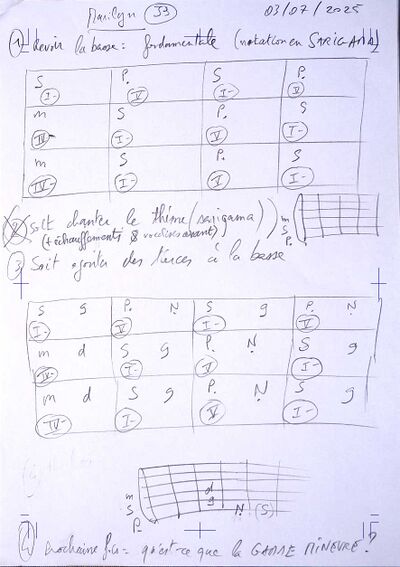 Marilyn 39 03/07/2025
① devoir la basse : fondamentale (notation en SARIGAMA)
S P. S P.
I- V I- V
m S P. S
IV- I- V I-
m S P. S
IV- I- V I-
② soit chanter le thème (sarigama)
(+ échauffements & vocalises avant)
m
S
P.
③ Soit ajouter des tierces à la basse
S g P. N. S g P. N.
I- V I- V
m d S g P. N. S g
IV- I- V I-
m d S g P. N. S g
IV- I- V I-
m
S
P.
d
g
N. (S)
prochaine fois = qu'est-ce que la GAMME MINEURE ?